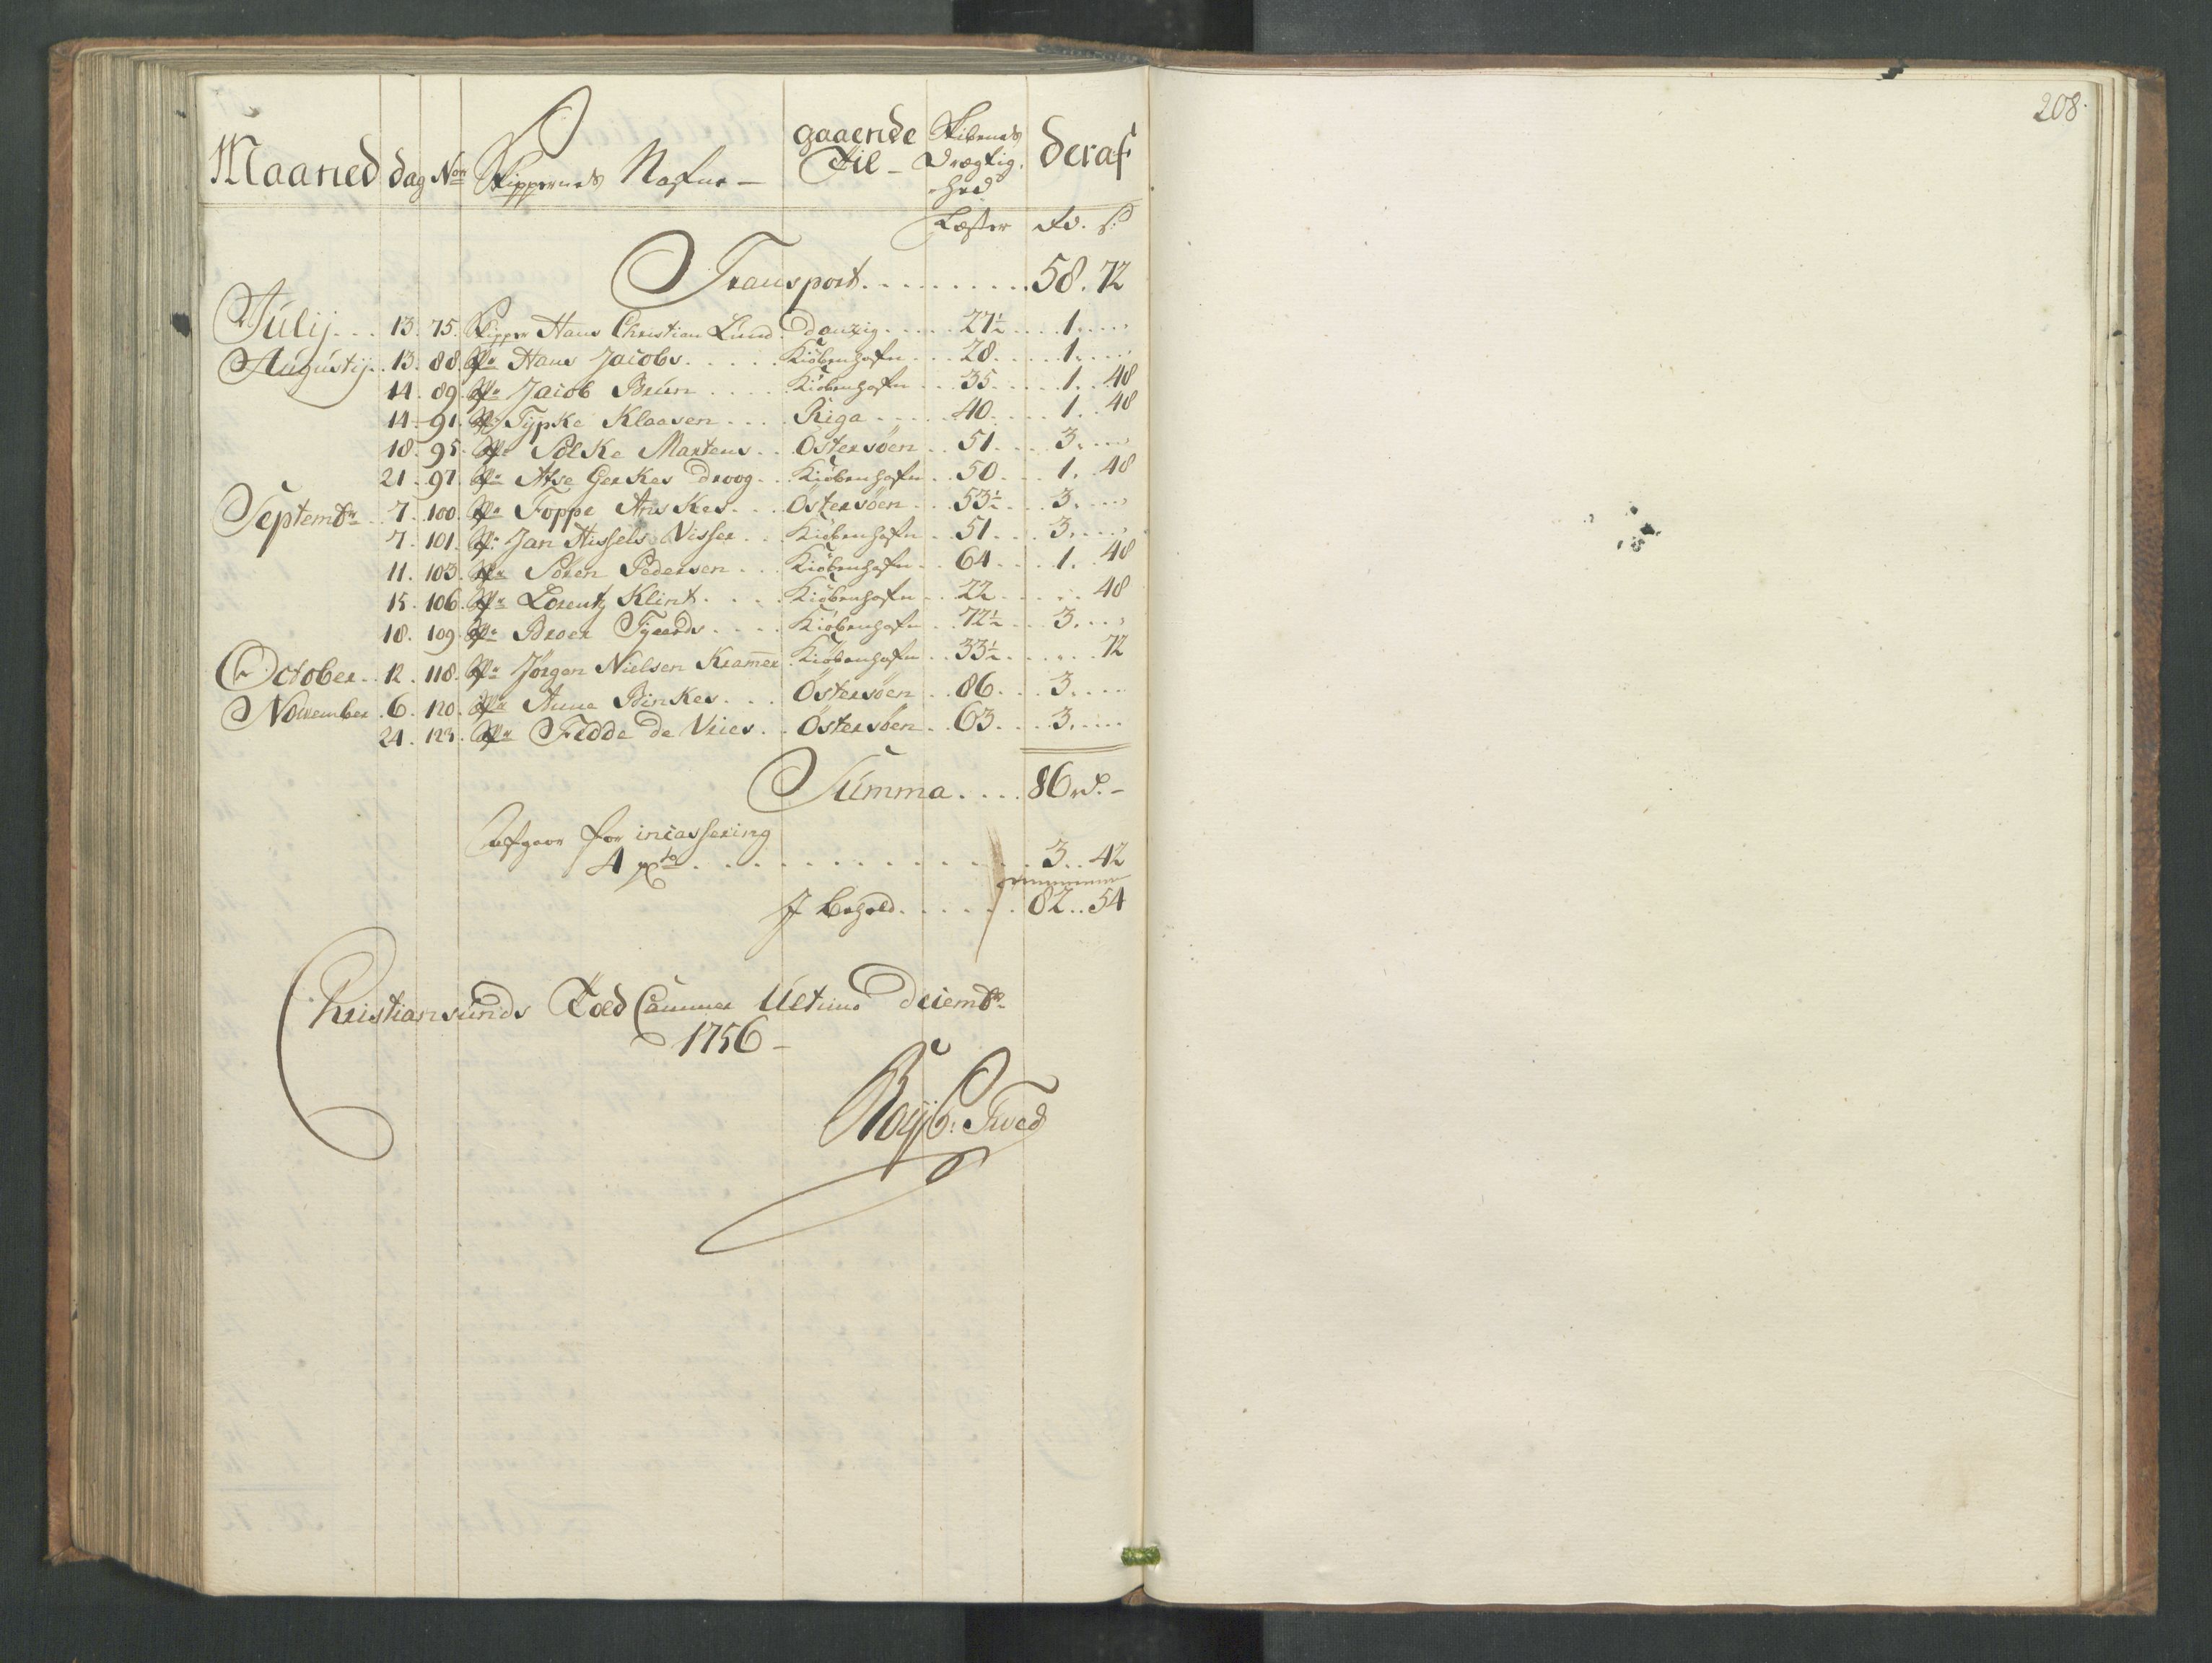 208.
Maaned dag No. Skippernes Nafne - gaaende Til - Skibenes Drægtig-hed deraf
Læster Rd. s.
Transport . . . . . . . . . 58. 72
Julij . . . 13. 75. Skipper Hans Christian Lund. Danzig . . . . . 27½ . . . . 1. . . . .
Augustij . . 13. 88. Spr Hans Jacobs . . . . . Kiöbenhafn . . . 28 . . . . . 1. . . . .
14. 89. Spr Jacob Brun . . . . Kiöbenhafn . . . 35 . . . . . 1. . 48
14. 91. Spr Typke Klaasen . . . . Riga . . . . . 40 . . . . 1. . 48
18. 95. Spr Sölke Martens . . Östersöen . . 51 . . . . 3. . . .
21. 97. Spr Atse Gerkes Droog . . Kiöbenhafn . . 50 . . . 1. . 48
Septembr . . 7. 100. Spr Foppe Ariskes . . . Östersöen . . . 53½ . . . 3. . . . .
7. 101. Spr Jan Hissels Visser . . Kiöbenhafn . . 51 . . . 3. . . . .
11. 103. Spr Sören Pedersen . . . Kiöbenhafn . . 64 . . . . 1. . 48
15. 106. Spr Lorentz Klint . . . . Kiöbenhafn . . 22 . . . . . . 48
18. 109. Spr Broer Tjeerds . . . . Kiöbenhafn . . 72½ . . . 3. . . .
October . . 12. 118. Spr Jörgen Nielsen Kramer. Kiöbenhafn . . 33½ . . . . . 72
November . 6. 120. Spr Anne Binkes . . . Östersöen . . 86 . . . 3. . . .
24. 123. Spr Fedde de Vries . . Östersöen . . 63 . . . . 3. . . . .
Summa . . . . 86 rd. -
Afgaar for incassering
4 pCto . . . . . . . . . . . . . 3. . 42
J Behold . . . . . . 82. . 54
Christiansunds Told Cammer Ultimo Decembr
1756 -
Tved